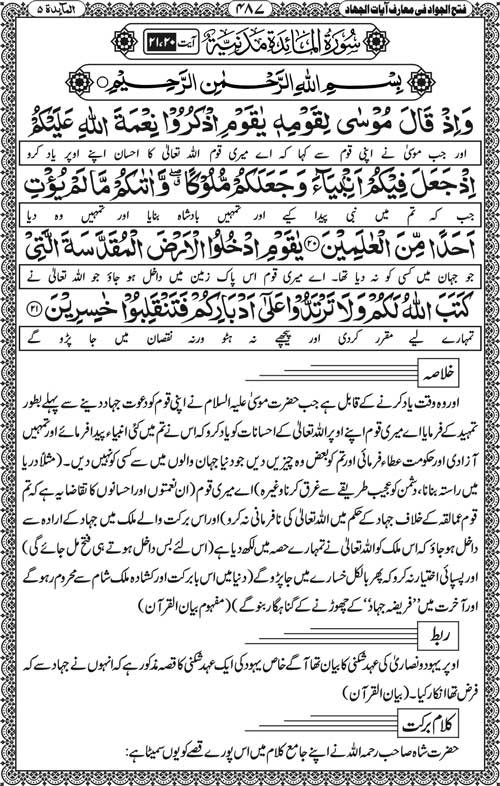 المايدة ۵
۴۸۷
فتح الجواد فی معارف آیات الجهاد
سُوْرَةُ الْمَائِدَةِ مَدَنِيَّةٌ آیت ۲۰، ۲۱
بِسْمِ اللهِ الرَّحْمٰنِ الرَّحِيْمِ
وَاِذْ قَالَ مُوْسٰى لِقَوْمِهٖ يٰقَوْمِ اذْكُرُوْا نِعْمَةَ اللهِ عَلَيْكُمْ
اور جب موسیٰ نے اپنی قوم سے کہا کہ اے میری قوم اللہ تعالیٰ کا احسان اپنے اوپر یاد کرو
اِذْ جَعَلَ فِيْكُمْ اَنْۢبِيَآءَ وَجَعَلَكُمْ مُّلُوْكًا ۖ وَّاٰتٰىكُمْ مَّا لَمْ يُؤْتِ
جب کہ تم میں نبی پیدا کیے اور تمہیں بادشاہ بنایا اور تمہیں وہ دیا
اَحَدًا مِّنَ الْعٰلَمِيْنَ ۲۰ يٰقَوْمِ ادْخُلُوا الْاَرْضَ الْمُقَدَّسَةَ الَّتِيْ
جو جہان میں کسی کو نہ دیا تھا۔ اے میری قوم اس پاک زمین میں داخل ہو جاؤ جو اللہ تعالیٰ نے
كَتَبَ اللهُ لَكُمْ وَلَا تَرْتَدُّوْا عَلٰٓى اَدْبَارِكُمْ فَتَنْقَلِبُوْا خٰسِرِيْنَ ۲۱
تمہارے لیے مقرر کردی اور پیچھے نہ ہٹو ورنہ نقصان میں جا پڑو گے
خلاصہ
اور وہ وقت یاد کرنے کے قابل ہے جب حضرت موسیٰ علیہ السلام نے اپنی قوم کو دعوت جہاد دینے سے پہلے بطور
تمہید کے فرمایا اے میری قوم اپنے اوپر اللہ تعالیٰ کے احسانات کو یاد کرو کہ اس نے تم میں کئی انبیاء پیدا فرمائے اور تمہیں
آزادی اور حکومت عطاء فرمائی اور تم کو بعض وہ چیزیں دیں جو دنیا جہان والوں میں سے کسی کو نہیں دیں۔ (مثلاً دریا
میں راستہ بنانا، دشمن کو عجیب طریقے سے غرق کرنا وغیرہ) اے میری قوم (ان نعمتوں اور احسانوں کا تقاضا یہ ہے کہ تم
قوم عمالقہ کے خلاف جہاد کے حکم میں اللہ تعالیٰ کی نافرمانی نہ کرو) اور اس برکت والے ملک میں جہاد کے ارادہ سے
داخل ہو جاؤ کہ اس ملک کو اللہ تعالیٰ نے تمہارے حصہ میں لکھ دیا ہے (اس لئے بس داخل ہوتے ہی فتح مل جائے گی)
اور پسپائی اختیار نہ کرو کہ پھر بالکل خسارے میں جا پڑو گے (دنیا میں اس بابرکت اور کشادہ ملک شام سے محروم رہو گے
اور آخرت میں ’’فریضہ جہاد‘‘ کے چھوڑنے کے گناہگار بنو گے) (مفہوم بیان القرآن)
ربط
اوپر یہود و نصاریٰ کی عہد شکنی کا بیان تھا آگے خاص یہود کی ایک عہد شکنی کا قصہ مذکور ہے کہ انہوں نے جہاد سے کہ
فرض تھا انکار کیا۔ (بیان القرآن)
کلام برکت
حضرت شاہ صاحب رحمہ اللہ نے اپنے جامع کلام میں اس پورے قصے کو یوں سمیٹا ہے: